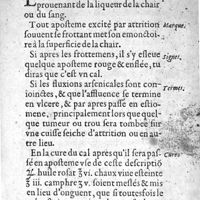 prouenant de la liqueur de la chair
ou du sang.
Tout aposteme excité par attrition
souuent se frottant met son emonctoi-
re à la superficie de la chair. Marque.
Si apres les frottemens, il s'y esleue
quelque aposteme rouge & enflée, tu Signes.
diras que c'est vn cal.
Si les fluxions arsenicales sont con-
ioinctes, & que l'affluence se termine Termes.
en vlcere, & par apres passe en estio-
mene, principalement lors que quel-
que tumeur ou trou sera tombée sur
vne cuisse seiche d'attrition ou en au-
tre lieu.
En la cure du cal apres qu'il sera pas- Cures
sé en aposteme vse de ceste descriptiō
huile rosat ʒ vi. chaux viue esteinte
ʒ iii. camphre ʒ v. soient meslés & mis
en lieu d'onguent, que si toutesfois le